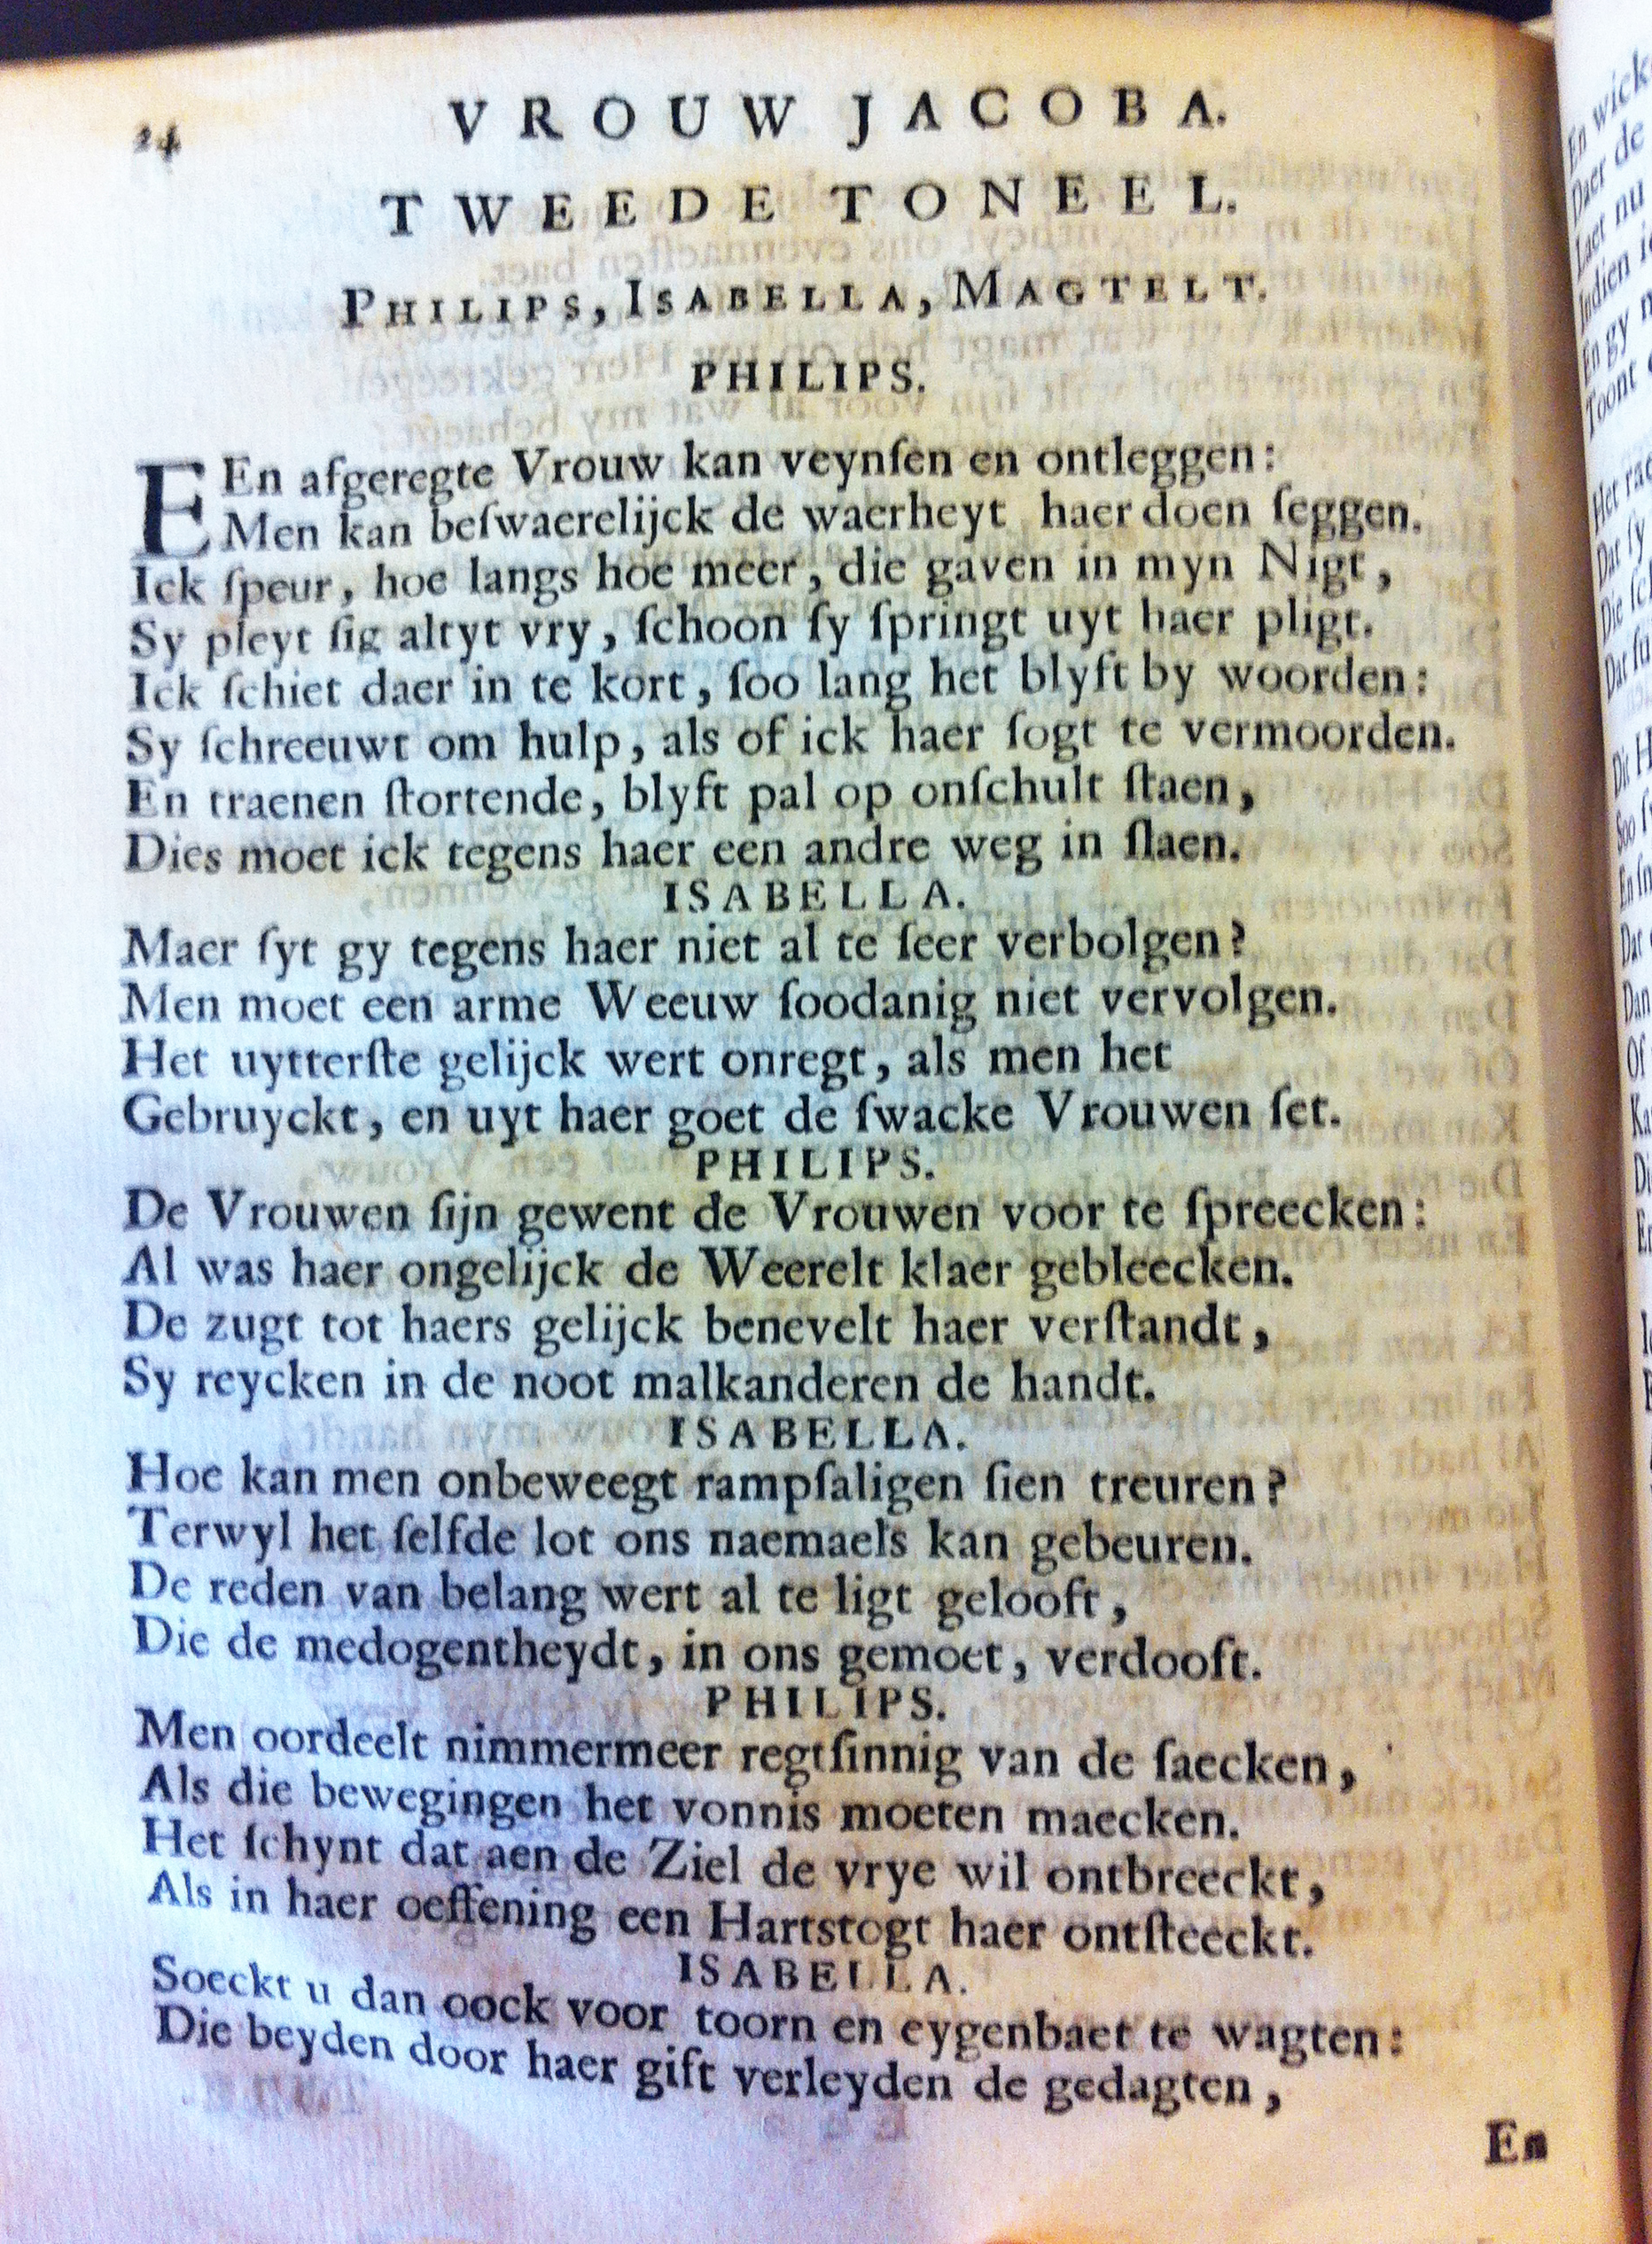 24
VROUW JACOBA.
TWEEDE TONEEL.
PHILIPS, ISABELLA, MAGTELT.
PHILIPS.
EEn afgeregte Vrouw kan veynſen en ontleggen:
Men kan beſwaerelijck de waerheyt haer doen ſeggen.
Ick ſpeur, hoe langs hoe meer, die gaven in myn Nigt,
Sy pleyt ſig altyt vry, ſchoon ſy ſpringt uyt haer pligt.
Ick ſchiet daer in te kort, ſoo lang het blyft by woorden:
Sy ſchreeuwt om hulp, als of ick haer ſogt te vermoorden.
En traenen ſtortende, blyft pal op onſchult ſtaen,
Dies moet ick tegens haer een andre weg in ſlaen.
ISABELLA.
Maer ſyt gy tegens haer niet al te ſeer verbolgen?
Men moet een arme Weeuw ſoodanig niet vervolgen.
Het uytterſte gelijck wert onregt, als men het
Gebruyckt, en uyt haer goet de ſwacke Vrouwen ſet.
PHILIPS.
De Vrouwen ſijn gewent de Vrouwen voor te ſpreecken:
Al was haer ongelijck de Weerelt klaer gebleecken.
De zugt tot haers gelijck benevelt haer verſtandt,
Sy reycken in de noot malkanderen de handt.
ISABELLA.
Hoe kan men onbeweegt rampſaligen ſien treuren?
Terwyl het ſelfde lot ons naemaels kan gebeuren.
De reden van belang wert al te ligt gelooft,
Die de medogentheydt, in ons gemoet, verdooft.
PHILIPS.
Men oordeelt nimmermeer regtſinnig van de ſaecken,
Als die bewegingen het vonnis moeten maecken.
Het ſchynt dat aen de Ziel de vrye wil ontbreeckt,
Als in haer oeffening een Hartstogt haer ontſteeckt.
ISABELLA.
Soeckt u dan oock voor toorn en eygenbaet te wagten:
Die beyden door haer gift verleyden de gedagten,
En